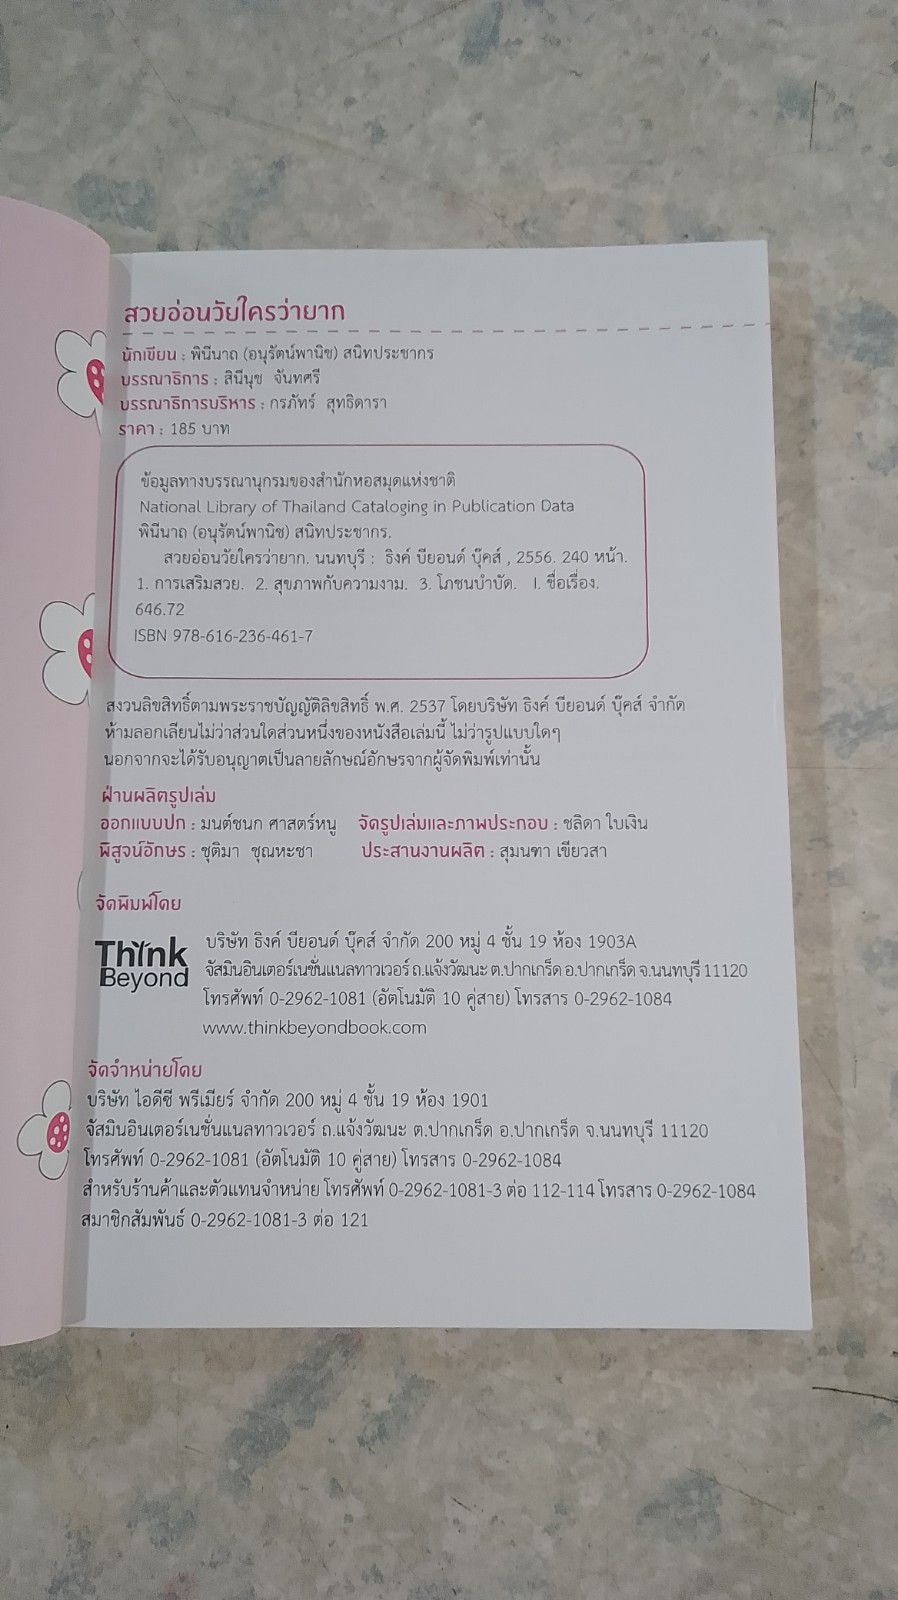 สวยอ่อนวัยใครว่ายาก
นักเขียน : พินีนาถ (อนุรัตน์พานิช) สนิทประชากร
บรรณาธิการ : สินีนุช จันทศรี
บรรณาธิการบริหาร : กรภัทร์ สุทธิดารา
ราคา : 185 บาท
ข้อมูลทางบรรณานุกรมของสำนักหอสมุดแห่งชาติ
National Library of Thailand Cataloging in Publication Data
พินีนาถ (อนุรัตน์พานิช) สนิทประชากร.
สวยอ่อนวัยใครว่ายาก. นนทบุรี : ธิงค์ บียอนด์ บุ๊คส์ , 2556. 240 หน้า.
1. การเสริมสวย. 2. สุขภาพกับความงาม. 3. โภชนบำบัด. I. ชื่อเรื่อง.
646.72
ISBN 978-616-236-461-7
สงวนลิขสิทธิ์ตามพระราชบัญญัติลิขสิทธิ์ พ.ศ. 2537 โดยบริษัท ธิงค์ บียอนด์ บุ๊คส์ จำกัด
ห้ามลอกเลียนไม่ว่าส่วนใดส่วนหนึ่งของหนังสือเล่มนี้ ไม่ว่ารูปแบบใดๆ
นอกจากจะได้รับอนุญาตเป็นลายลักษณ์อักษรจากผู้จัดพิมพ์เท่านั้น
ฝ่านผลิตรูปเล่ม
ออกแบบปก : มนต์ชนก ศาสตร์หนู จัดรูปเล่มและภาพประกอบ : ชลิดา ใบเงิน
พิสูจน์อักษร : ชุติมา ชุณหะชา ประสานงานผลิต : สุมนฑา เขียวสา
จัดพิมพ์โดย
Think
Beyond
บริษัท ธิงค์ บียอนด์ บุ๊คส์ จำกัด 200 หมู่ 4 ชั้น 19 ห้อง 1903A
จัสมินอินเตอร์เนชั่นแนลทาวเวอร์ ถ.แจ้งวัฒนะ ต.ปากเกร็ด อ.ปากเกร็ด จ.นนทบุรี 11120
โทรศัพท์ 0-2962-1081 (อัตโนมัติ 10 คู่สาย) โทรสาร 0-2962-1084
www.thinkbeyondbook.com
จัดจำหน่ายโดย
บริษัท ไอดีซี พรีเมียร์ จำกัด 200 หมู่ 4 ชั้น 19 ห้อง 1901
จัสมินอินเตอร์เนชั่นแนลทาวเวอร์ ถ.แจ้งวัฒนะ ต.ปากเกร็ด อ.ปากเกร็ด จ.นนทบุรี 11120
โทรศัพท์ 0-2962-1081 (อัตโนมัติ 10 คู่สาย) โทรสาร 0-2962-1084
สำหรับร้านค้าและตัวแทนจำหน่าย โทรศัพท์ 0-2962-1081-3 ต่อ 112-114 โทรสาร 0-2962-1084
สมาชิกสัมพันธ์ 0-2962-1081-3 ต่อ 121